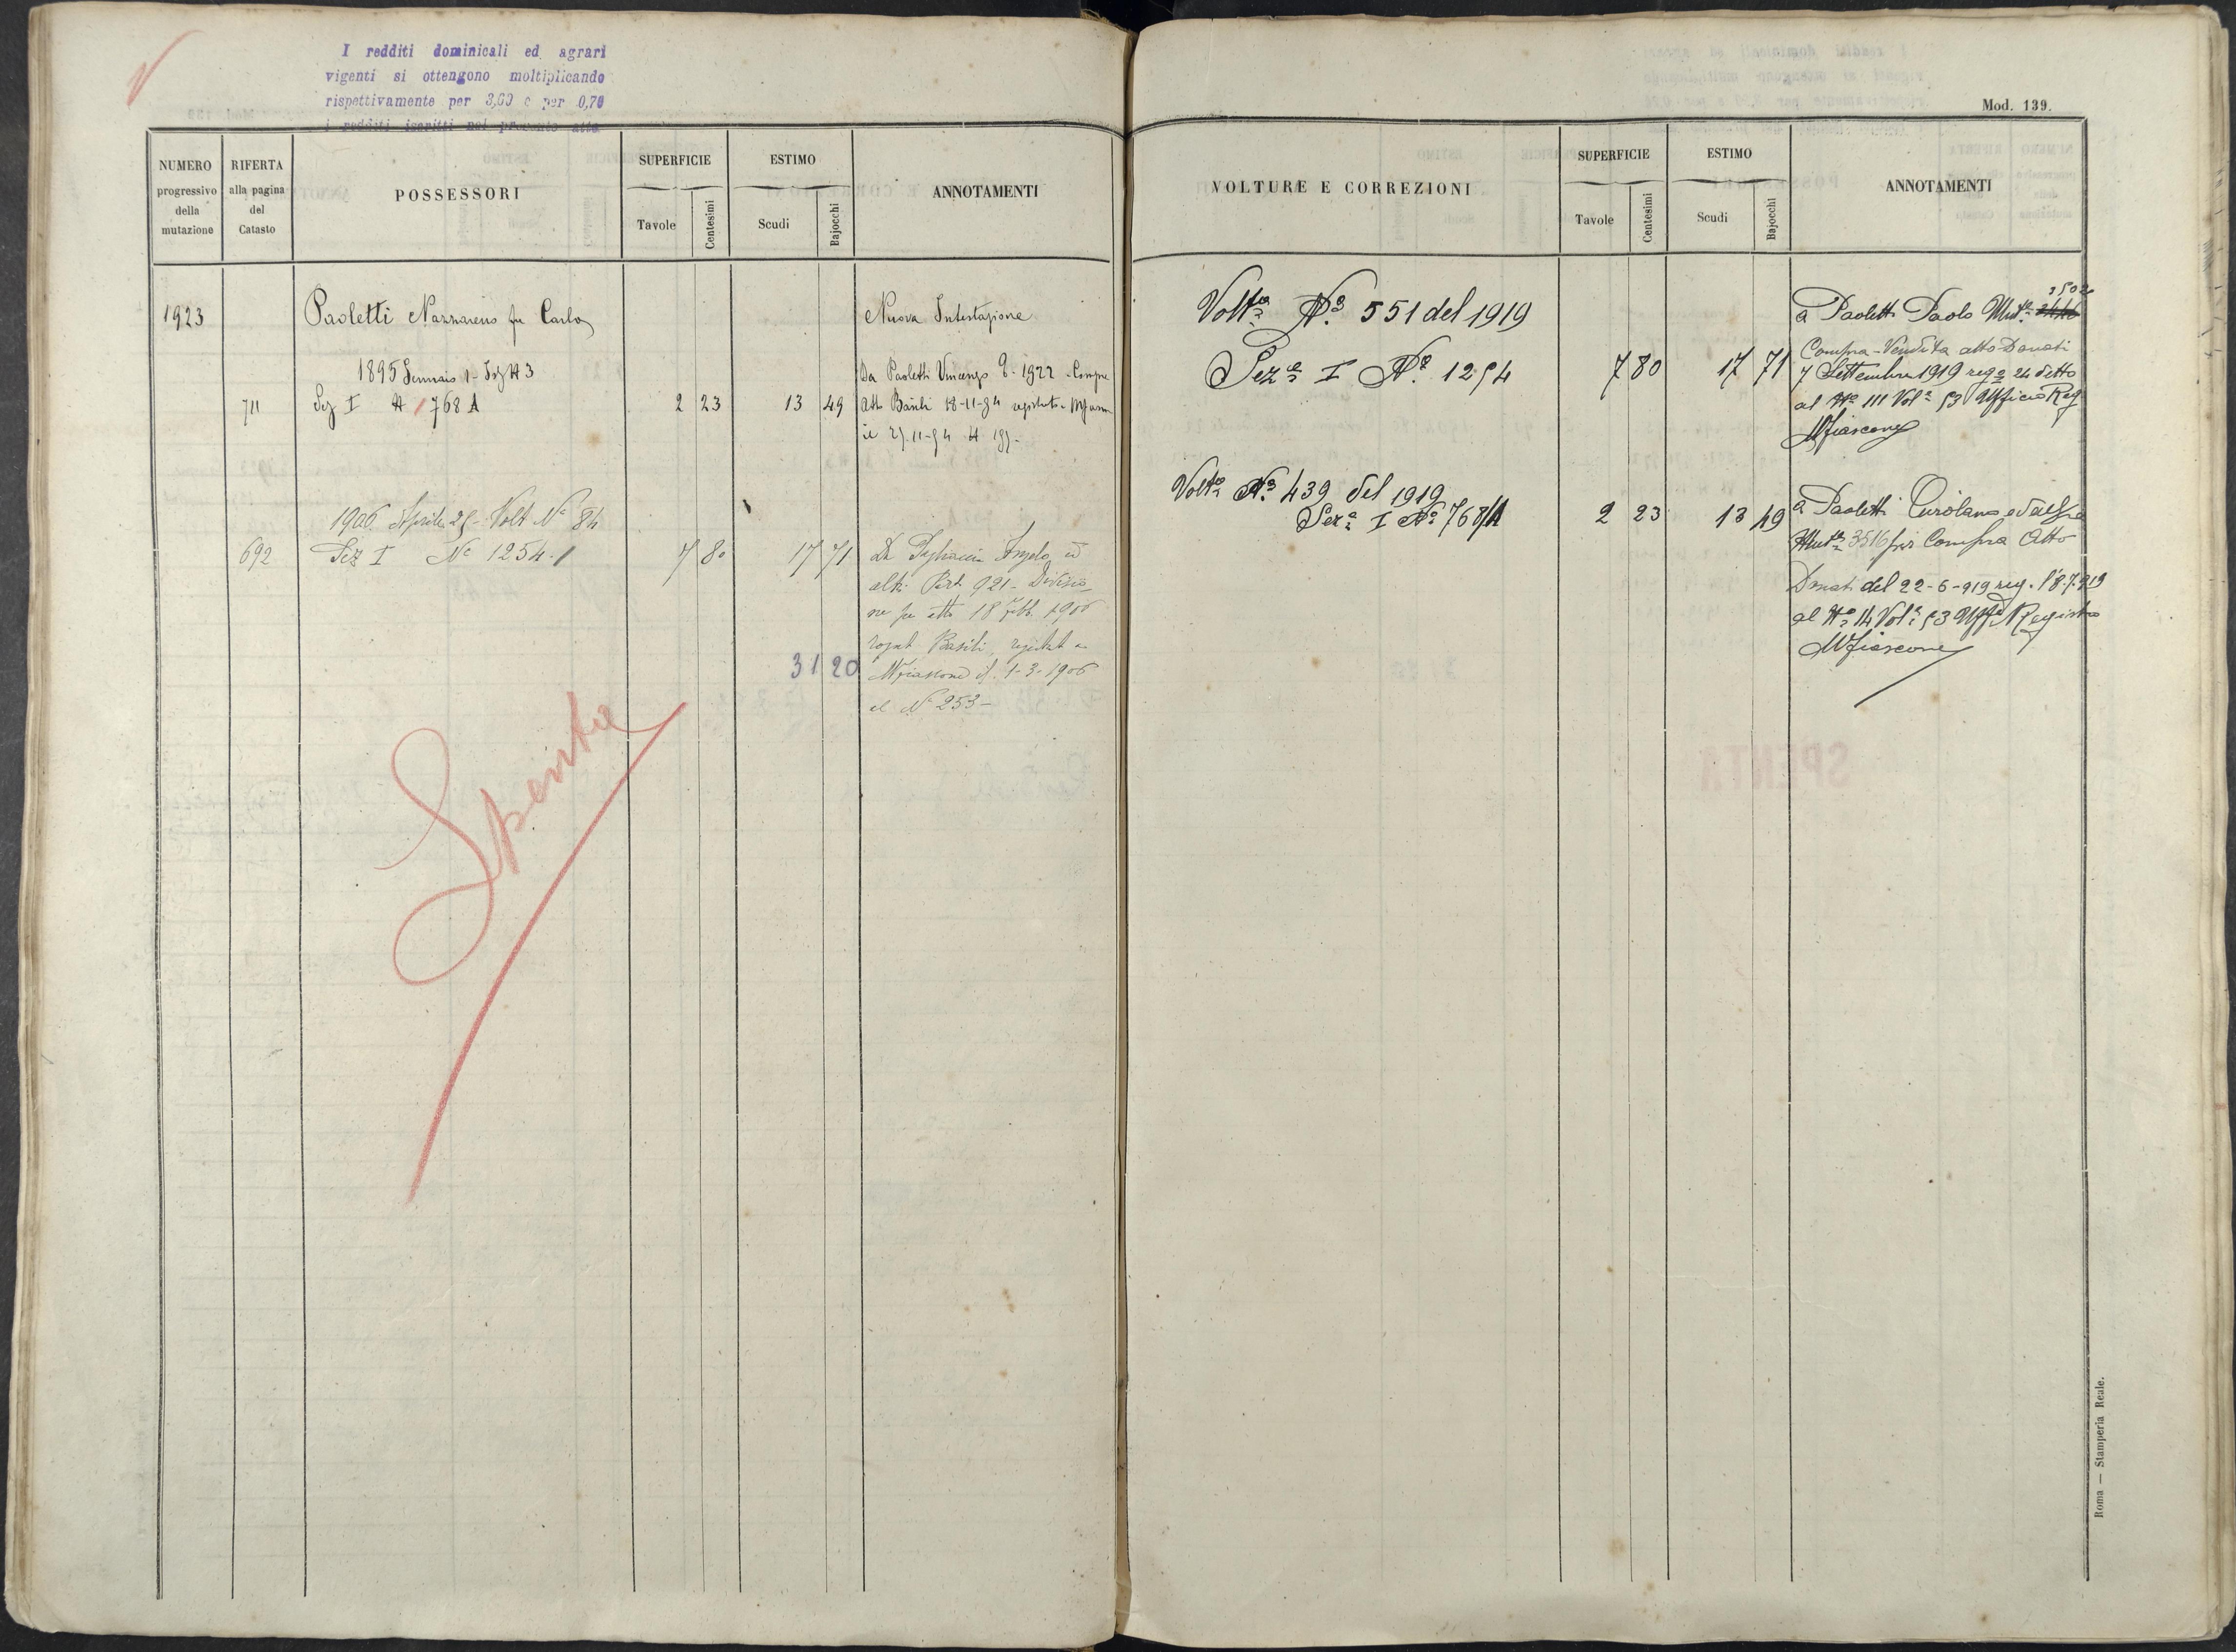 I redditi dominicali ed agrari
vigenti si ottengono moltiplicando
rispettivamente per 3,60 e per 0,70
i redditi iscritti nel presente atto
NUMERO progressivo della mutazione
RIFERTA alla pagina del Catasto
POSSESSORI
SUPERFICIE
Tavole
Centesimi
ESTIMO
Scudi
Bajocchi
ANNOTAMENTI
1923
Paoletti Nazzareno fu Carlo
Nuova Intestazione
1895 Gennaio 1 N 3
Da Paoletti Vincenzo 1922 Compra
711 Sez I N 768/1 2 23 13 49
Atto Basili 18-11-94
il 27-11-94 N
1906 Aprile 25 Volt N° 84
692 Sez I N° 1254/1 7 80 17 71
Da Angelo ed
altri Part. 921 - Divisio-
ne per atto 18 Febb. 1906
rogat Basili, registrat a
31 20
Mfiascone il 1-3-1906
al N° 253 -
Spenta
Mod. 139.
VOLTURE E CORREZIONI
SUPERFICIE
Tavole
Centesimi
ESTIMO
Scudi
Bajocchi
ANNOTAMENTI
Volta N° 551 del 1919
3502
a Paoletti Paolo Muta
Seze I N° 1254 7 80 17 71
Compra-Vendita atto Donati
7 Settembre 1919 rega 24 detto
al N° 111 Vol° 53 Ufficio Reg
Mfiascone
Volta N° 439 del 1919
Seze I N° 768/1 2 23 13 49
a Paoletti
Muta 3516 per Compra Atto
Donati del 22-6-919 reg. l'8.7.919
al N° 14 Vol° 53 Uff° Registro
Mfiascone
SPENTA
Roma — Stamperia Reale.